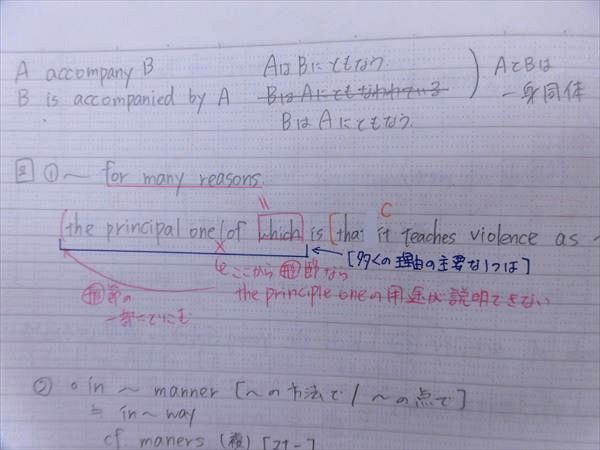 A accompany B AはBにともなう
B is accompanied by A BはAにともなわれている
BはAにともなう
AとBは
一身同体
② ① ～ for many reasons.
the principal one of which is that it teaches violence as
C
[多くの理由の主要な1つは]
ここから 節なら
the principle oneの用途が説明できない
節の
② ○ in ～ manner [～の方法で / ～の点で]
≒ in ～ way
cf maners (複)